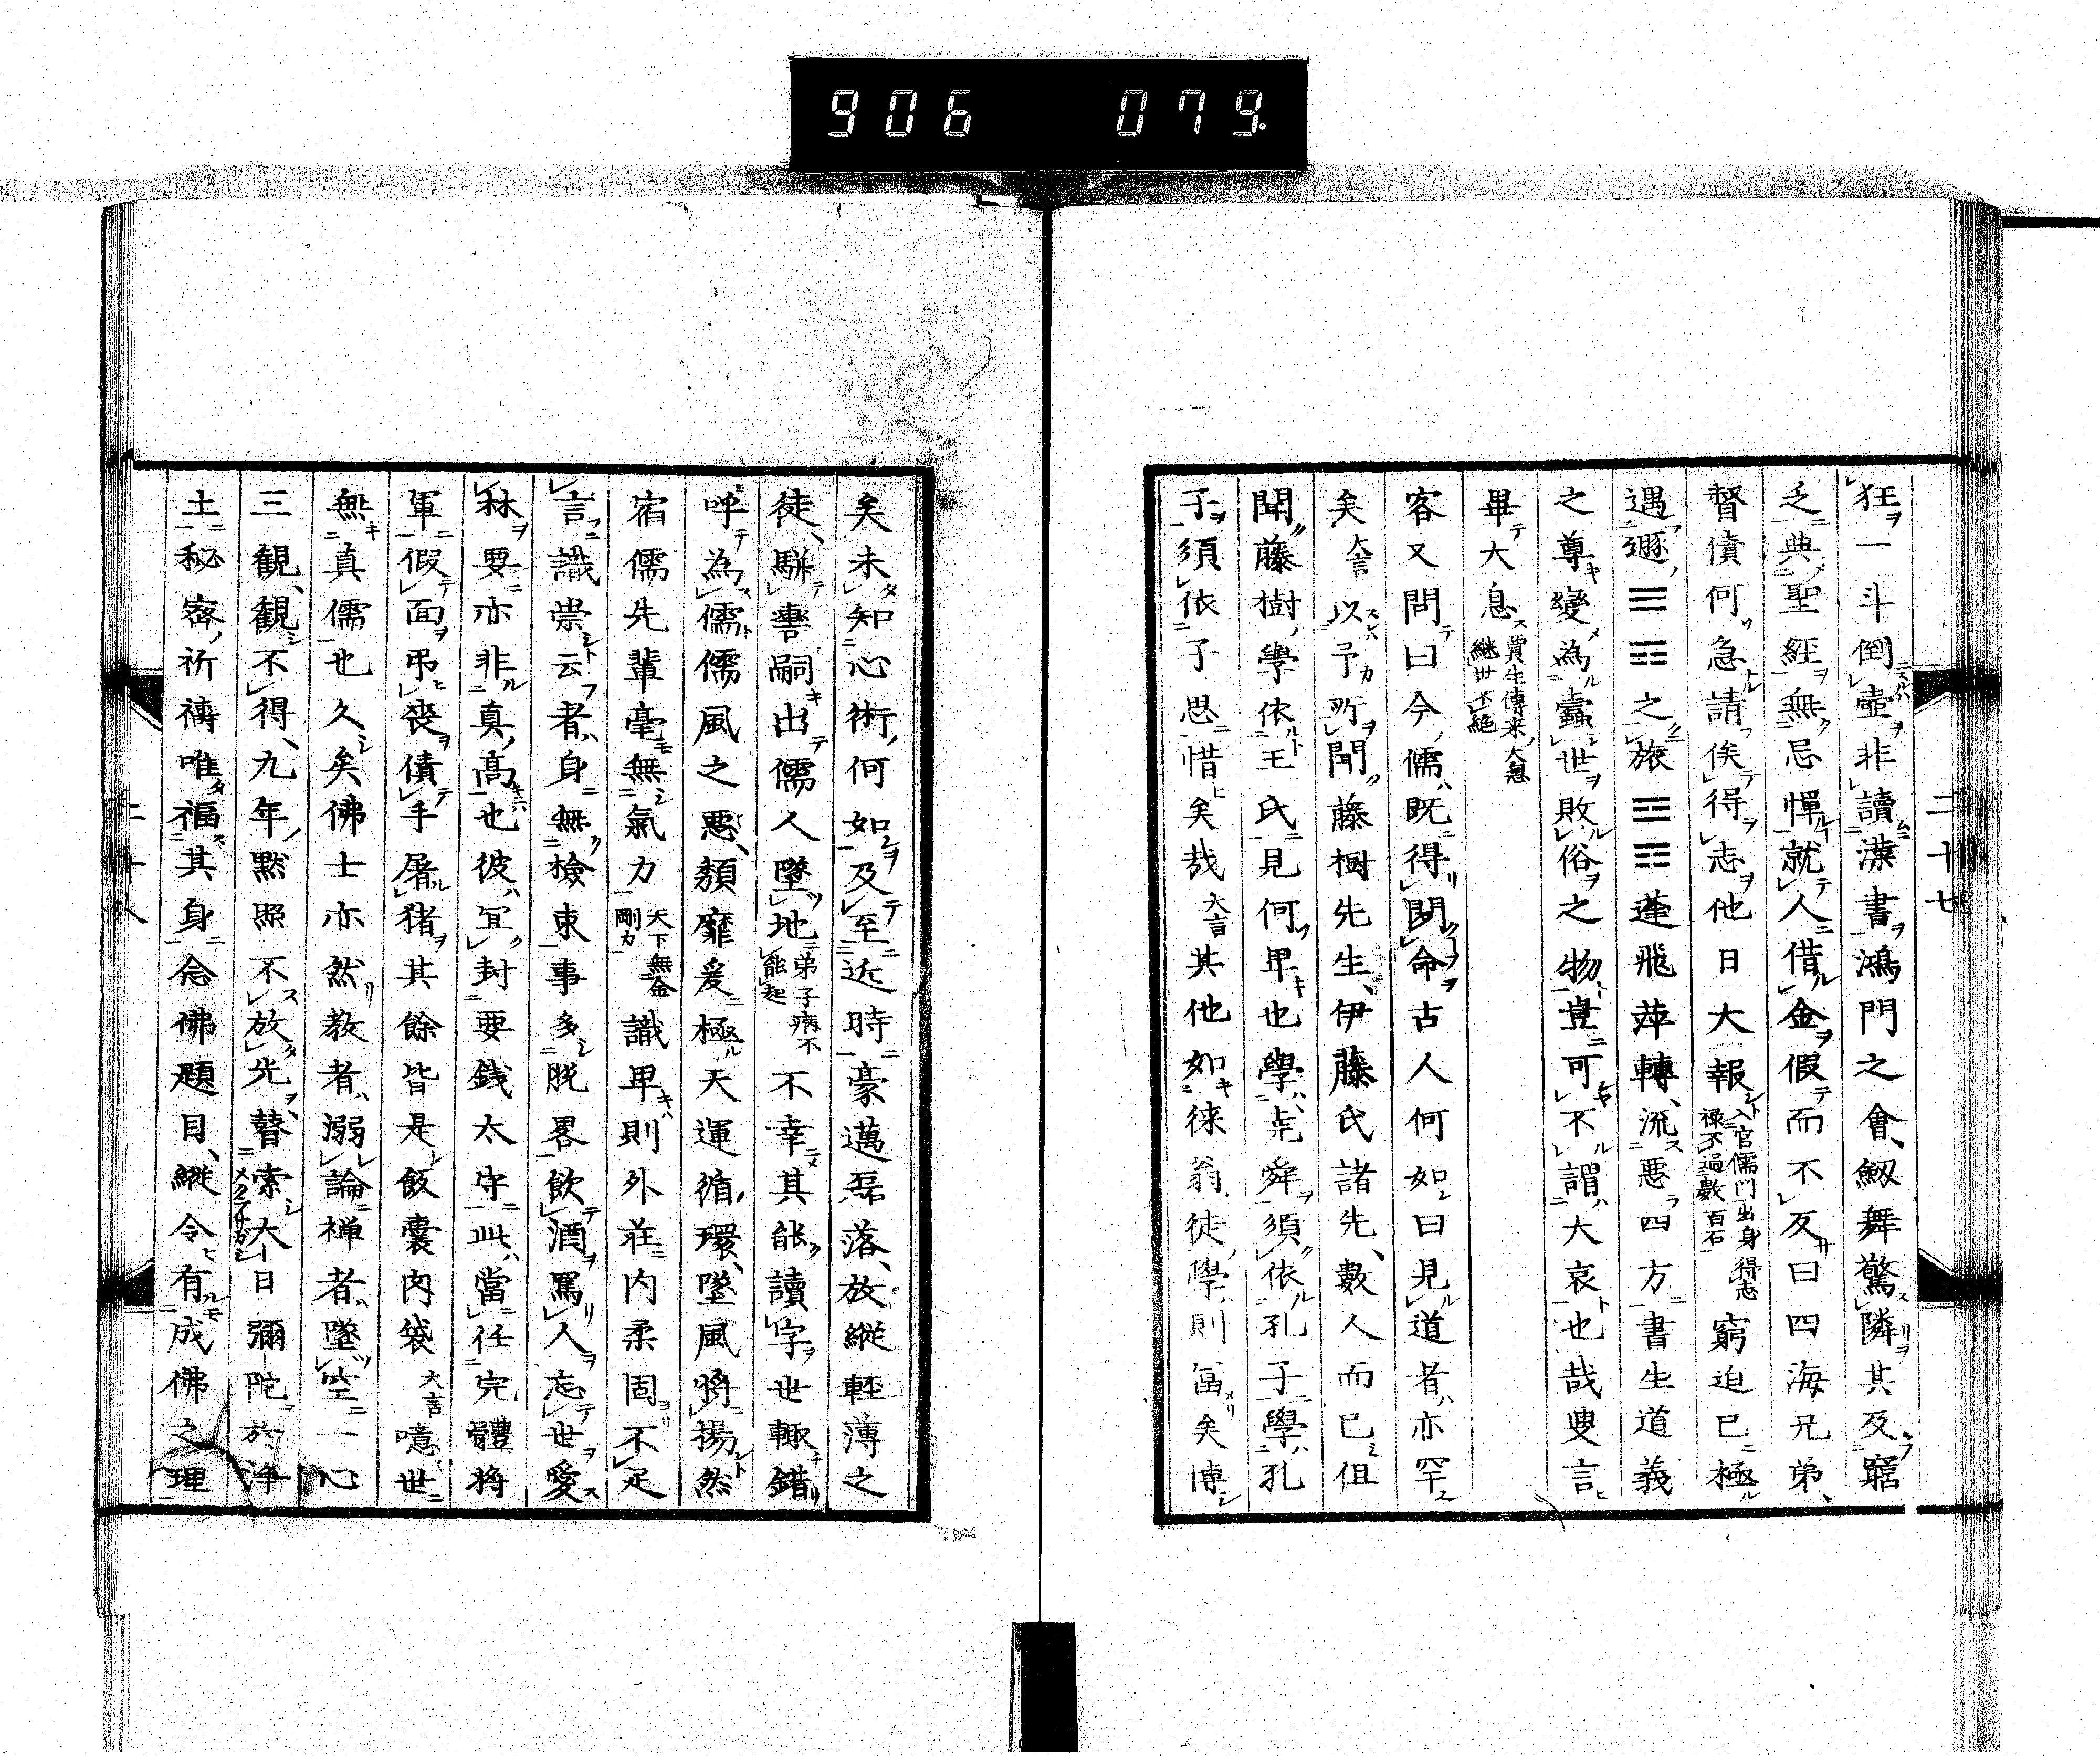 906 079.
二十七
狂一斗倒壺非讀漢書鴻門之會劔舞驚隣其及窮
乏典聖經無忌憚就人借金假而不反曰四海兄弟
督債何急請俟得志他日大報入官儒門出身得志祿不過數百石窮迫已極
遇遯☰☶之旅☲☶蓬飛萍轉流惡四方書生道義
之尊變為蠹世敗俗之物豈可不謂大哀也哉叟言
畢大息賈生傳来大息継世不絶
客又問曰今儒既得聞命古人何如曰見道者亦罕
矣大言以予所聞藤樹先生伊藤氏諸先數人而已但
聞藤樹學依王氏見何卑也學堯舜須依孔子學孔
子須依子思惜矣哉大言其他如徠翁徒學則富矣博
矣未知心術何如及至近時豪邁磊落放縱輕薄之
徒駢轡嗣出儒人墜地弟子病不能起不幸其能讀字世輙錯
呼為儒儒風之惡頽靡爰極天運循環墜風將揚然
宿儒先輩毫無氣力天下無金剛力識卑則外荘内柔固不足
言識崇云者身無檢束事多脱畧飲酒罵人忘世愛
林要亦非真高也彼冝封要錢太守此當任完體將
軍假面弔喪債手屠猪其餘皆是飯囊肉袋大言噫世
無真儒也久矣佛士亦然教者溺論禅者墜空一心
三観觀不得九年黙照不放光瞽索大日彌陀於浄
土秘密祈禱唯福其身念佛題目縱令有成佛之理